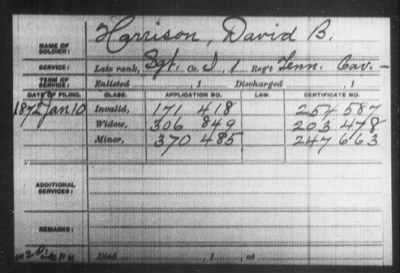 NAME OF SOLDIER: Harrison, David B.
SERVICE: Late rank, Sgt. Co. I, 1 Reg't Tenn. Cav. -
TERM OF SERVICE: Enlisted , 1 Discharged , 1
DATE OF FILING. CLASS. APPLICATION NO. LAW. CERTIFICATE NO.
1872 Jan 10 Invalid, 171 418 254 587
Widow, 306 849 203 478
Minor, 370 485 247 663
ADDITIONAL SERVICES:
REMARKS:
Died , 1 , at